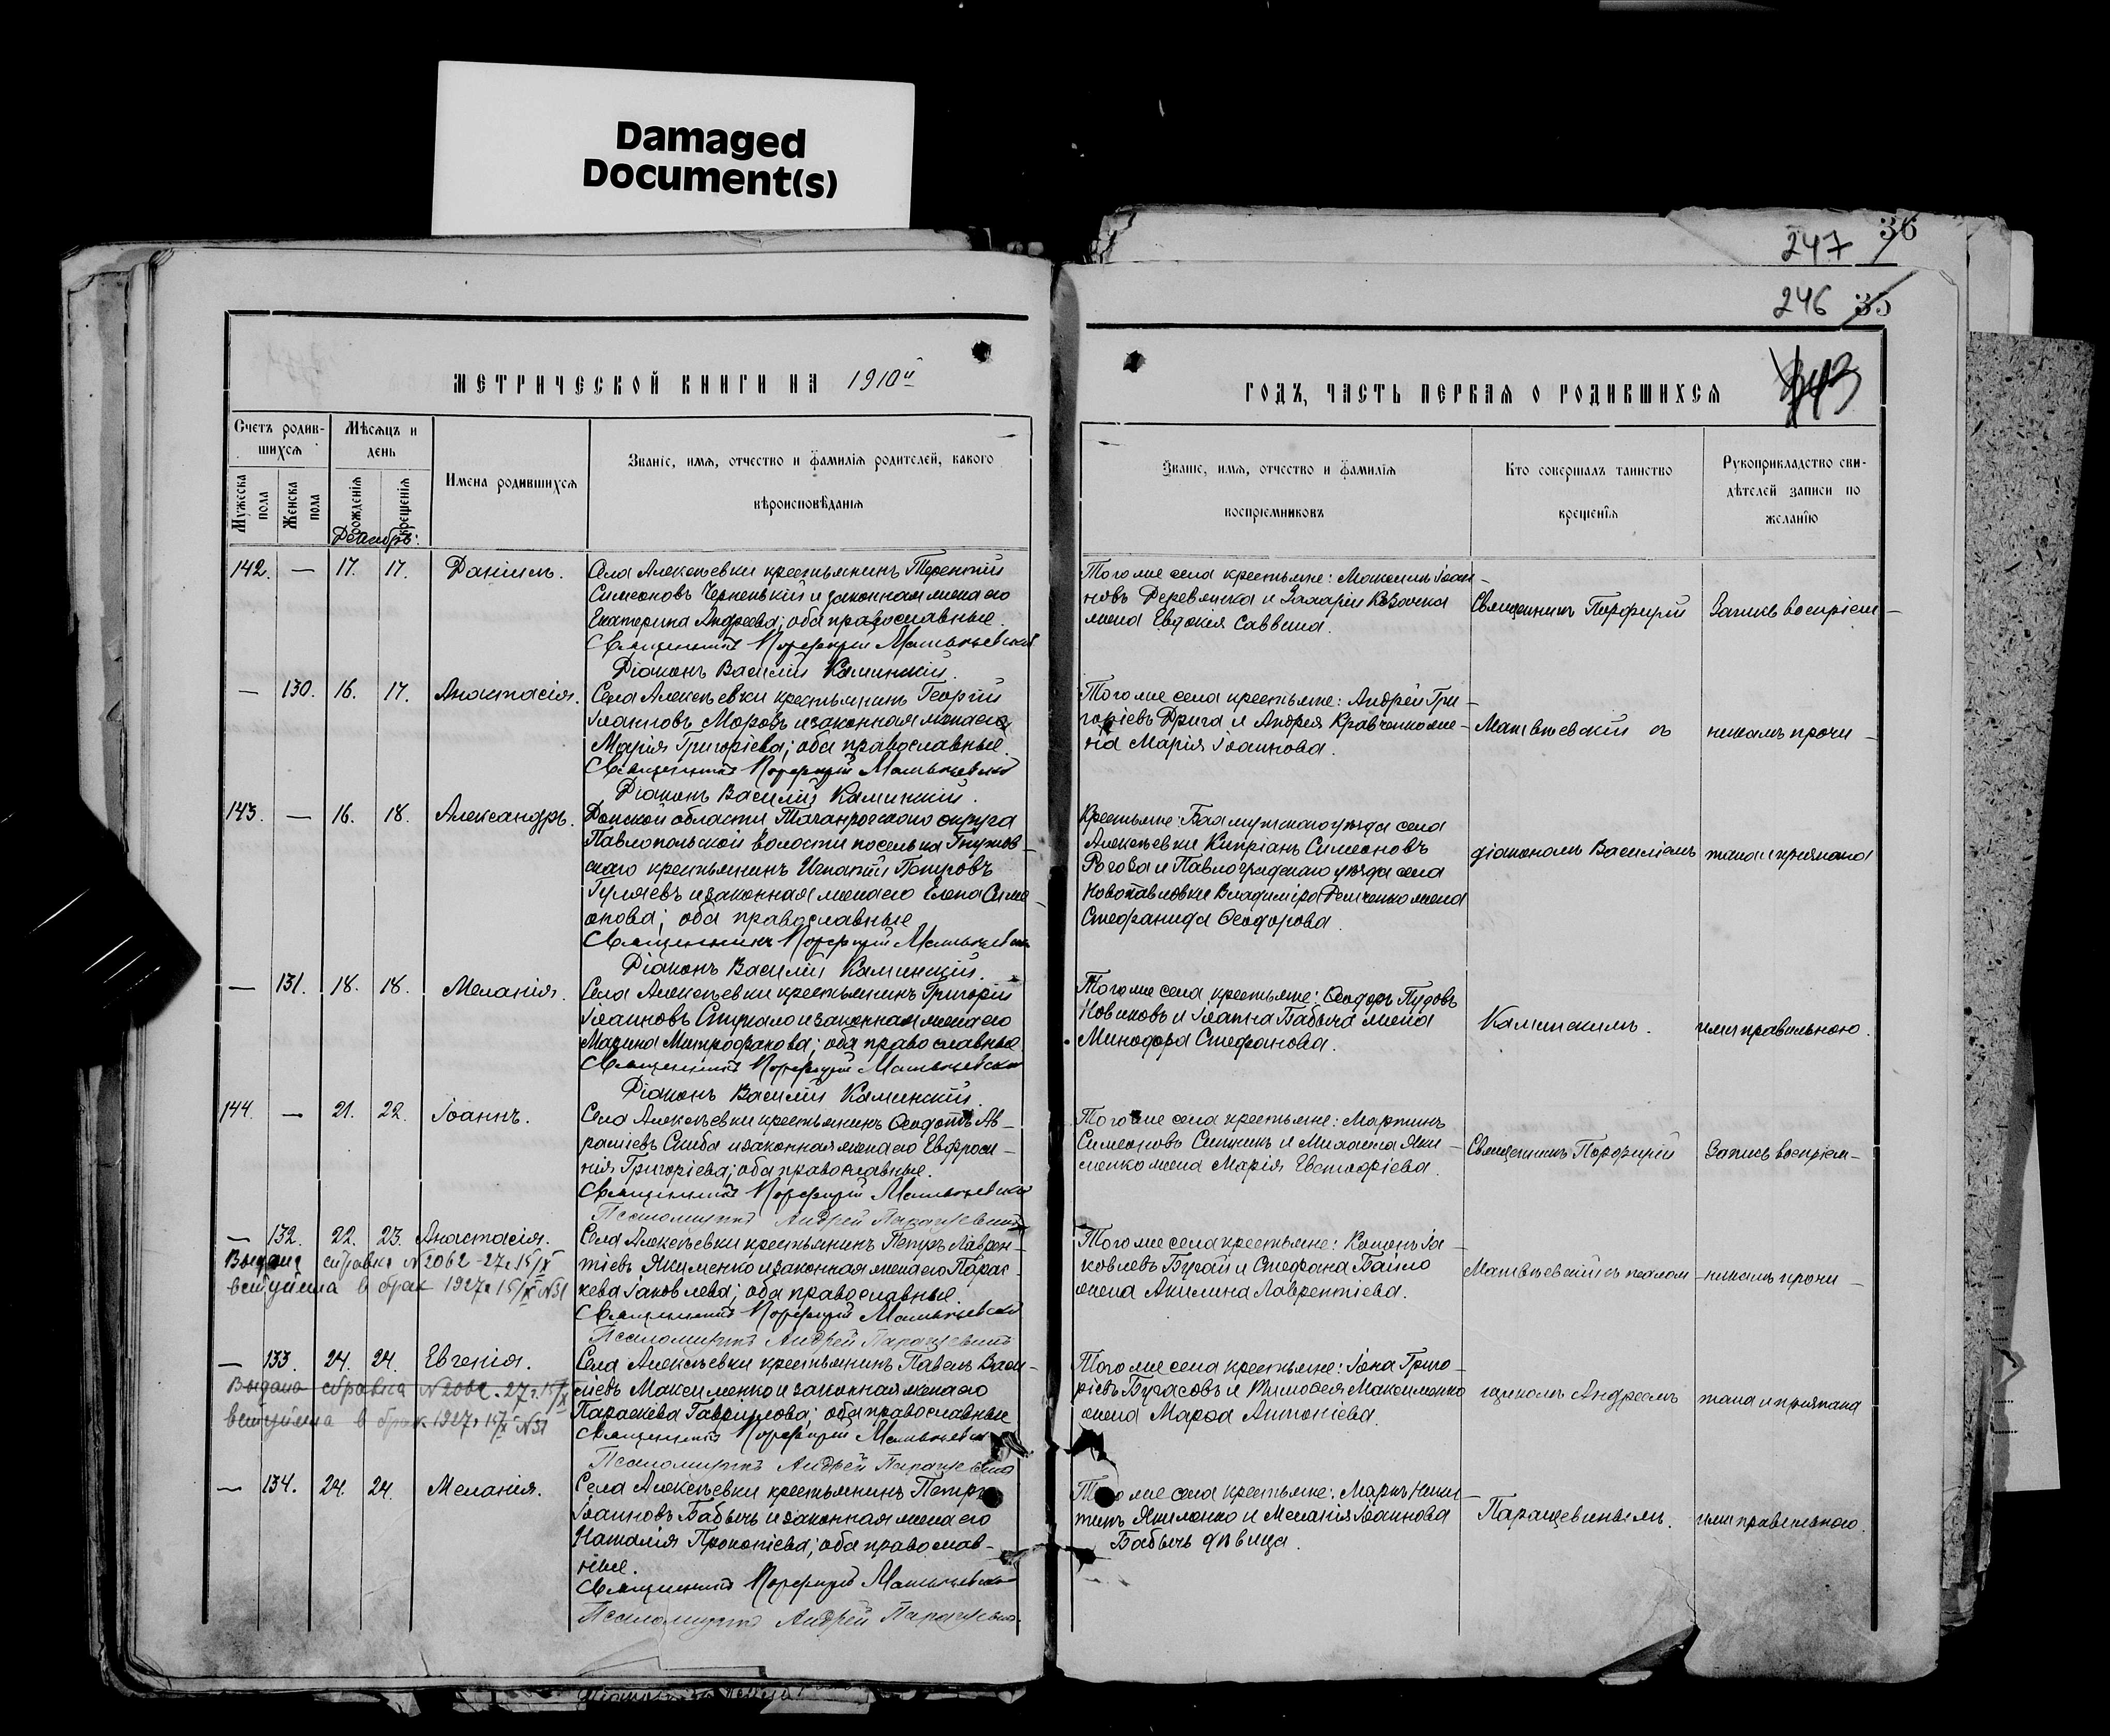 Damaged
Document(s)
247 36
246 35
МЕТРИЧЕСКОЙ КНИГИ НА 1910й
Счетъ родив-
шихся
Мѣсяцъ и
день
Мужеска
пола
Женска
пола
рожденія
крещенія
Имена родившихся
Званіе, имя, отчество и фамилія родителей, какого
вѣроисповѣданія
Декабрь:
142. — 17. 17. Даніилъ.
Села Алексѣевки крестьянинъ Терентій
Симеоновъ Черненькій и законная жена его
Екатерина Андреева; оба православные.
Священникъ Порфирій Матвѣевскій
Діаконъ Василій Каминскій.
— 130. 16. 17. Анастасія.
Села Алексѣевки крестьянинъ Георгій
Іоанновъ Морозъ и законная жена его
Марія Григоріева; оба православные.
Священникъ Порфирій Матвѣевскій
Діаконъ Василій Каминскій.
143. — 16. 18. Александръ.
Донской области Таганрогскаго округа
Павлопольской волости поселка
скаго крестьянинъ Игнатій Петровъ
Гуляевъ и законная жена его Елена Симе-
онова; оба православные
Священникъ Порфирій Матвѣевскій
Діаконъ Василій Каминскій.
— 131. 18. 18. Меланія.
Села Алексѣевки крестьянинъ Григорій
Іоанновъ Стукало и законная жена его
Марина Митрофанова; оба православные
Священникъ Порфирій Матвѣевскій
Діаконъ Василій Каминскій.
144. — 21. 22. Іоаннъ.
Села Алексѣевки крестьянинъ Ѳеодотъ Ав-
раміевъ Скиба и законная жена его Евфроси-
нія Григоріева; оба православные.
Священникъ Порфирій Матвѣевскій
Псаломщикъ Андрей Паращевинъ
— 132. 22. 23. Анастасія.
Села Алексѣевки крестьянинъ Петръ Лаврен-
тіевъ Якименко и законная жена его Парас-
кева Іаковлева; оба православные.
Священникъ Порфирій Матвѣевскій
Псаломщикъ Андрей Паращевинъ
Выдана справка №2062-27г. 15/X
вступила в брак 1927г 15/X №31
— 133. 24. 24. Евгенія.
Села Алексѣевки крестьянинъ Павелъ Васи-
ліевъ Максименко и законная жена его
Параскева Гавріилова; оба православные
Священникъ Порфирій Матвѣевскій
Псаломщикъ Андрей Паращевинъ
Выдана справка №2062-27г. 15/X
вступила в брак 1927г 15/X №31
— 134. 24. 24. Меланія.
Села Алексѣевки крестьянинъ Петръ
Іоанновъ Бабычъ и законная жена его
Наталія Прокопіева; оба православ-
ные.
Священникъ Порфирій Матвѣевскій
Псаломщикъ Андрей Паращевинъ
ГОДЪ, ЧАСТЬ ПЕРВАЯ О РОДИВШИХСЯ
Званіе, имя, отчество и фамилія
воспріемниковъ
Кто совершалъ таинство
крещенія
Рукоприкладство сви-
дѣтелей записи по
желанію
Того же села крестьяне: Максимъ Іоан-
новъ Деревянка и Захарія Козачка
жена Евдокія Саввина.
Того же села крестьяне: Андрей Гри-
горіевъ Дрига и Андрея Кравченко же-
на Марія Іоаннова.
Крестьяне: Бахмутскаго уѣзда села
Алексѣевки Кипріанъ Симеоновъ
Рогоза и Павлоградскаго уѣзда села
Новопавловки Владиміра Демченко жена
Стефанида Ѳеодорова.
Того же села крестьяне: Ѳеодоръ Пудовъ
Новиковъ и Іоанна Бабыча жена
Минодора Стефанова.
Того же села крестьяне: Мартинъ
Симеоновъ Ситникъ и Михаила Яки-
менко жена Марія Евстафіева.
Того же села крестьяне: Кононъ Іа-
ковлевъ Бугай и Стефана Байло
жена Акилина Лаврентіева.
Того же села крестьяне: Іона Григо-
ріевъ Бугасовъ и Тимоѳея Максименко
жена Марѳа Антоніева.
Того же села крестьяне: Маркъ Ники-
тинъ Якименко и Меланія Іоаннова
Бабычъ дѣвица.
Священникъ Порфирій
Матвѣевскій съ
діакономъ Василіемъ
Каминскимъ.
Священникъ Порфирій
Матвѣевскій съ псалом-
щикомъ Андреемъ
Паращевинымъ.
Запись воспріем-
никамъ прочи-
тана и признана
ими правильною.
Запись воспріем-
никамъ прочи-
тана и признана
ими правильною.